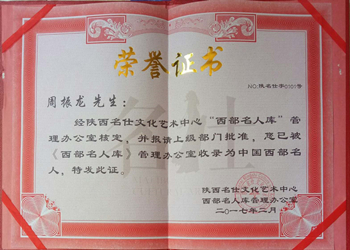 荣誉证书
NO:陕名仕字0301号
周振龙 先生：
经陕西名仕文化艺术中心“西部名人库”管
理办公室核定，并报请上级部门批准，您已被
《西部名人库》管理办公室收录为中国西部名
人，特发此证。
陕西名仕文化艺术中心
西部名人库管理办公室
二〇一七年二月